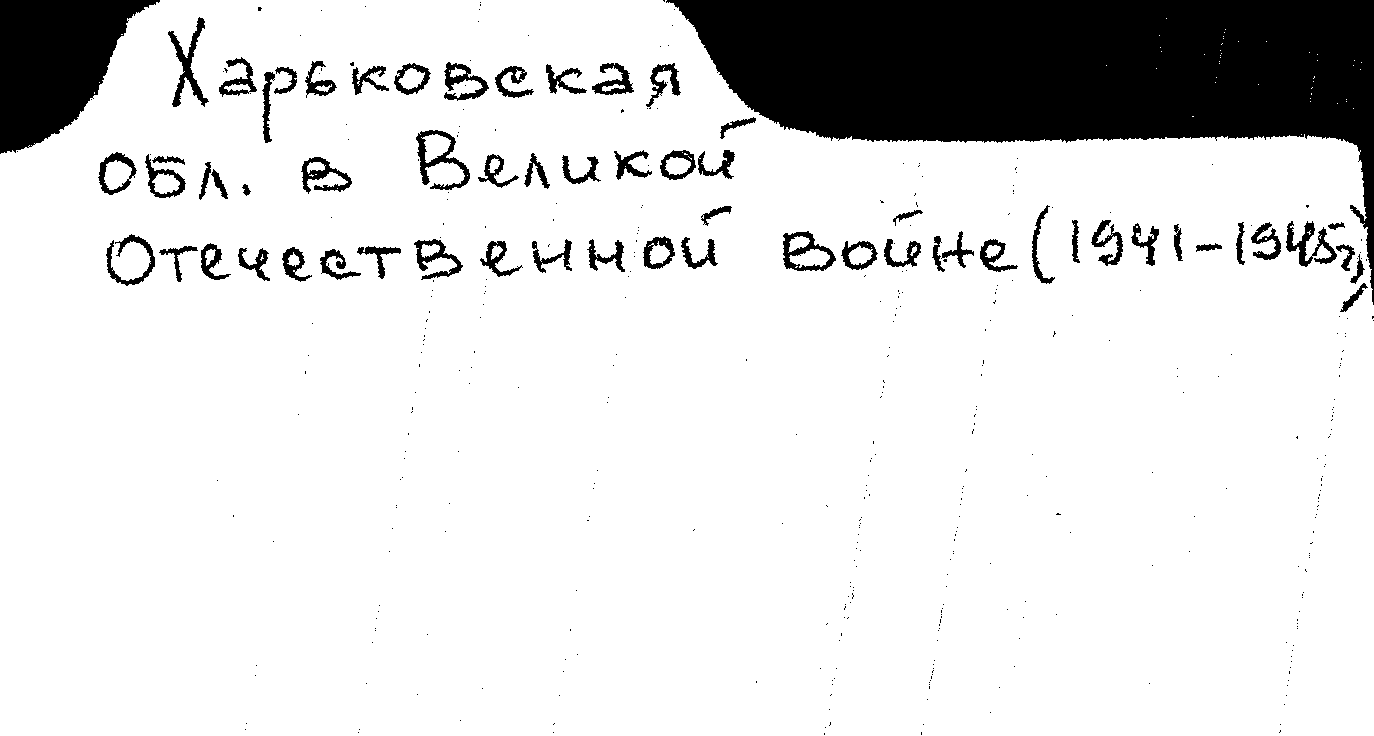 Харьковская
обл. в Великой
Отечественной войне (1941-1945г.)